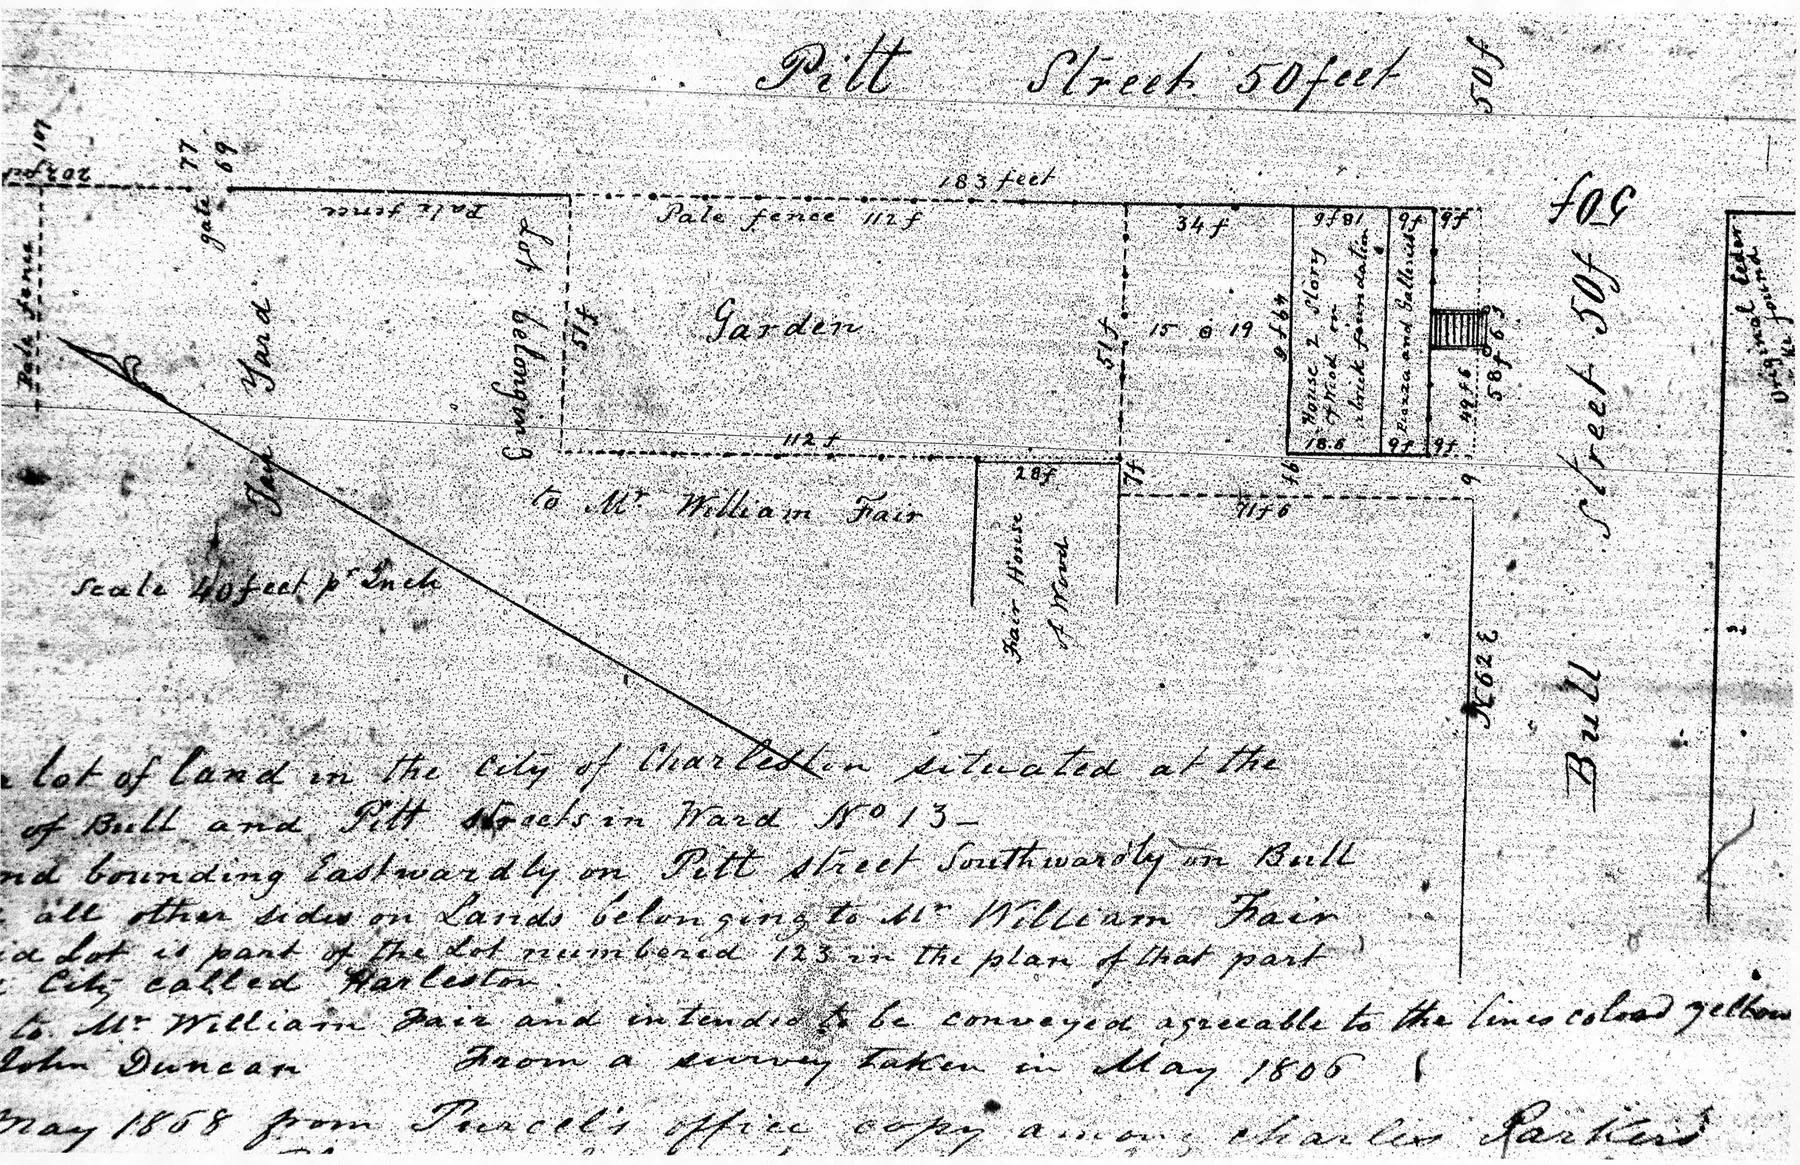 Pitt Street 50 feet
50f
107
77
69
202 feet
gate
Pale fence
Pale fence
183 feet
Pale fence 112 f
34 f
18f6
9f
9f
50f
Lot belonging
to Mr. William Fair
51f
Garden
51f
15 19
49f6
House 2 Story
of Wood on
brick foundation
Piazza and Galleries
49f6
58f6
Tan Yard
112 f
28f
7f
18.6
9f
9f
9
71f6
Fair House
of Wood
Scale 40 feet pr Inch
N62E
Bull Street 50f
Original Cedar
found
lot of land in the City of Charleston situated at the
of Bull and Pitt streets in Ward No 13—
nd bounding Eastwardly on Pitt street Southwardly on Bull
all other sides on Lands belonging to Mr William Fair
id Lot is part of the Lot numbered 123 in the plan of that part
City called Harleston.
to Mr William Fair and intended to be conveyed agreeable to the lines colored yellow
John Duncan From a survey taken in May 1806
May 1868 from Purcel's office copy among charles Parkers